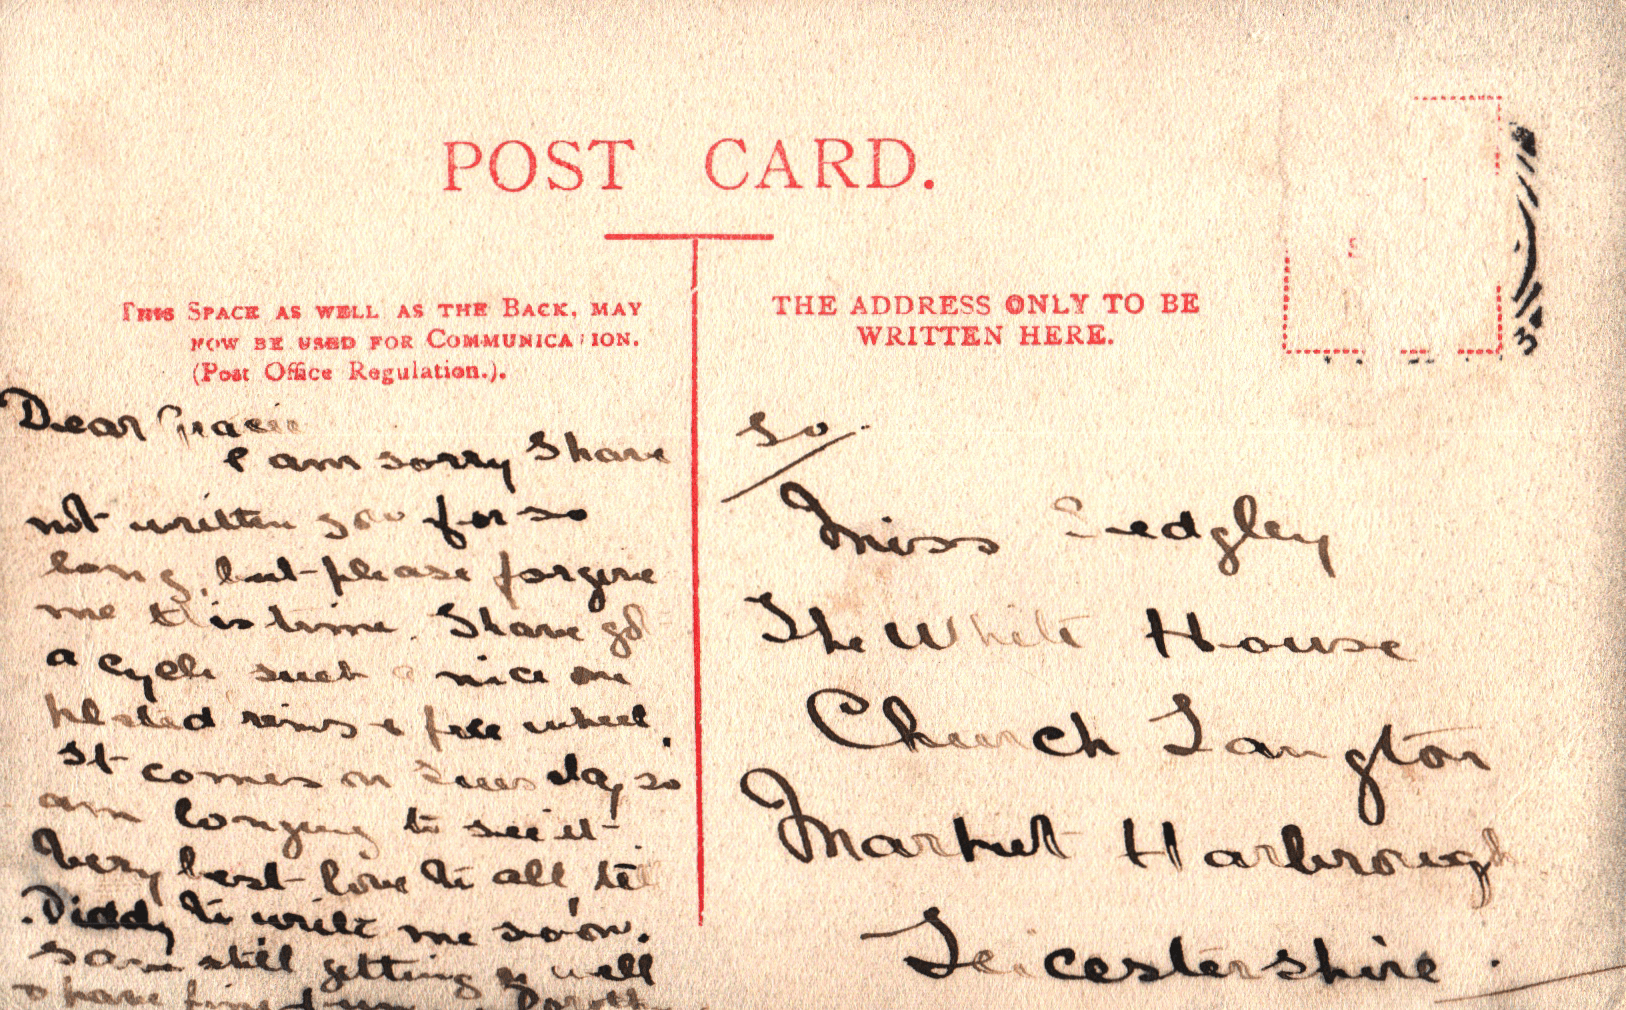 POST CARD.
THIS SPACE AS WELL AS THE BACK, MAY
NOW BE USED FOR COMMUNICATION.
(Post Office Regulation.).
THE ADDRESS ONLY TO BE
WRITTEN HERE.
Dear Gracie
I am sorry I have
not written you for so
long, but please forgive
me this time. I have got
a cycle such a nice one
plated rims & free wheel.
It comes on Tuesday, so
am longing to see it.
Very best love to all, tell
Diddy to write me soon.
I am still getting on well
& have fine fun Dorothy
Miss Sedgley
The White House
Church Langton
Market Harbrough
Leicestershire.